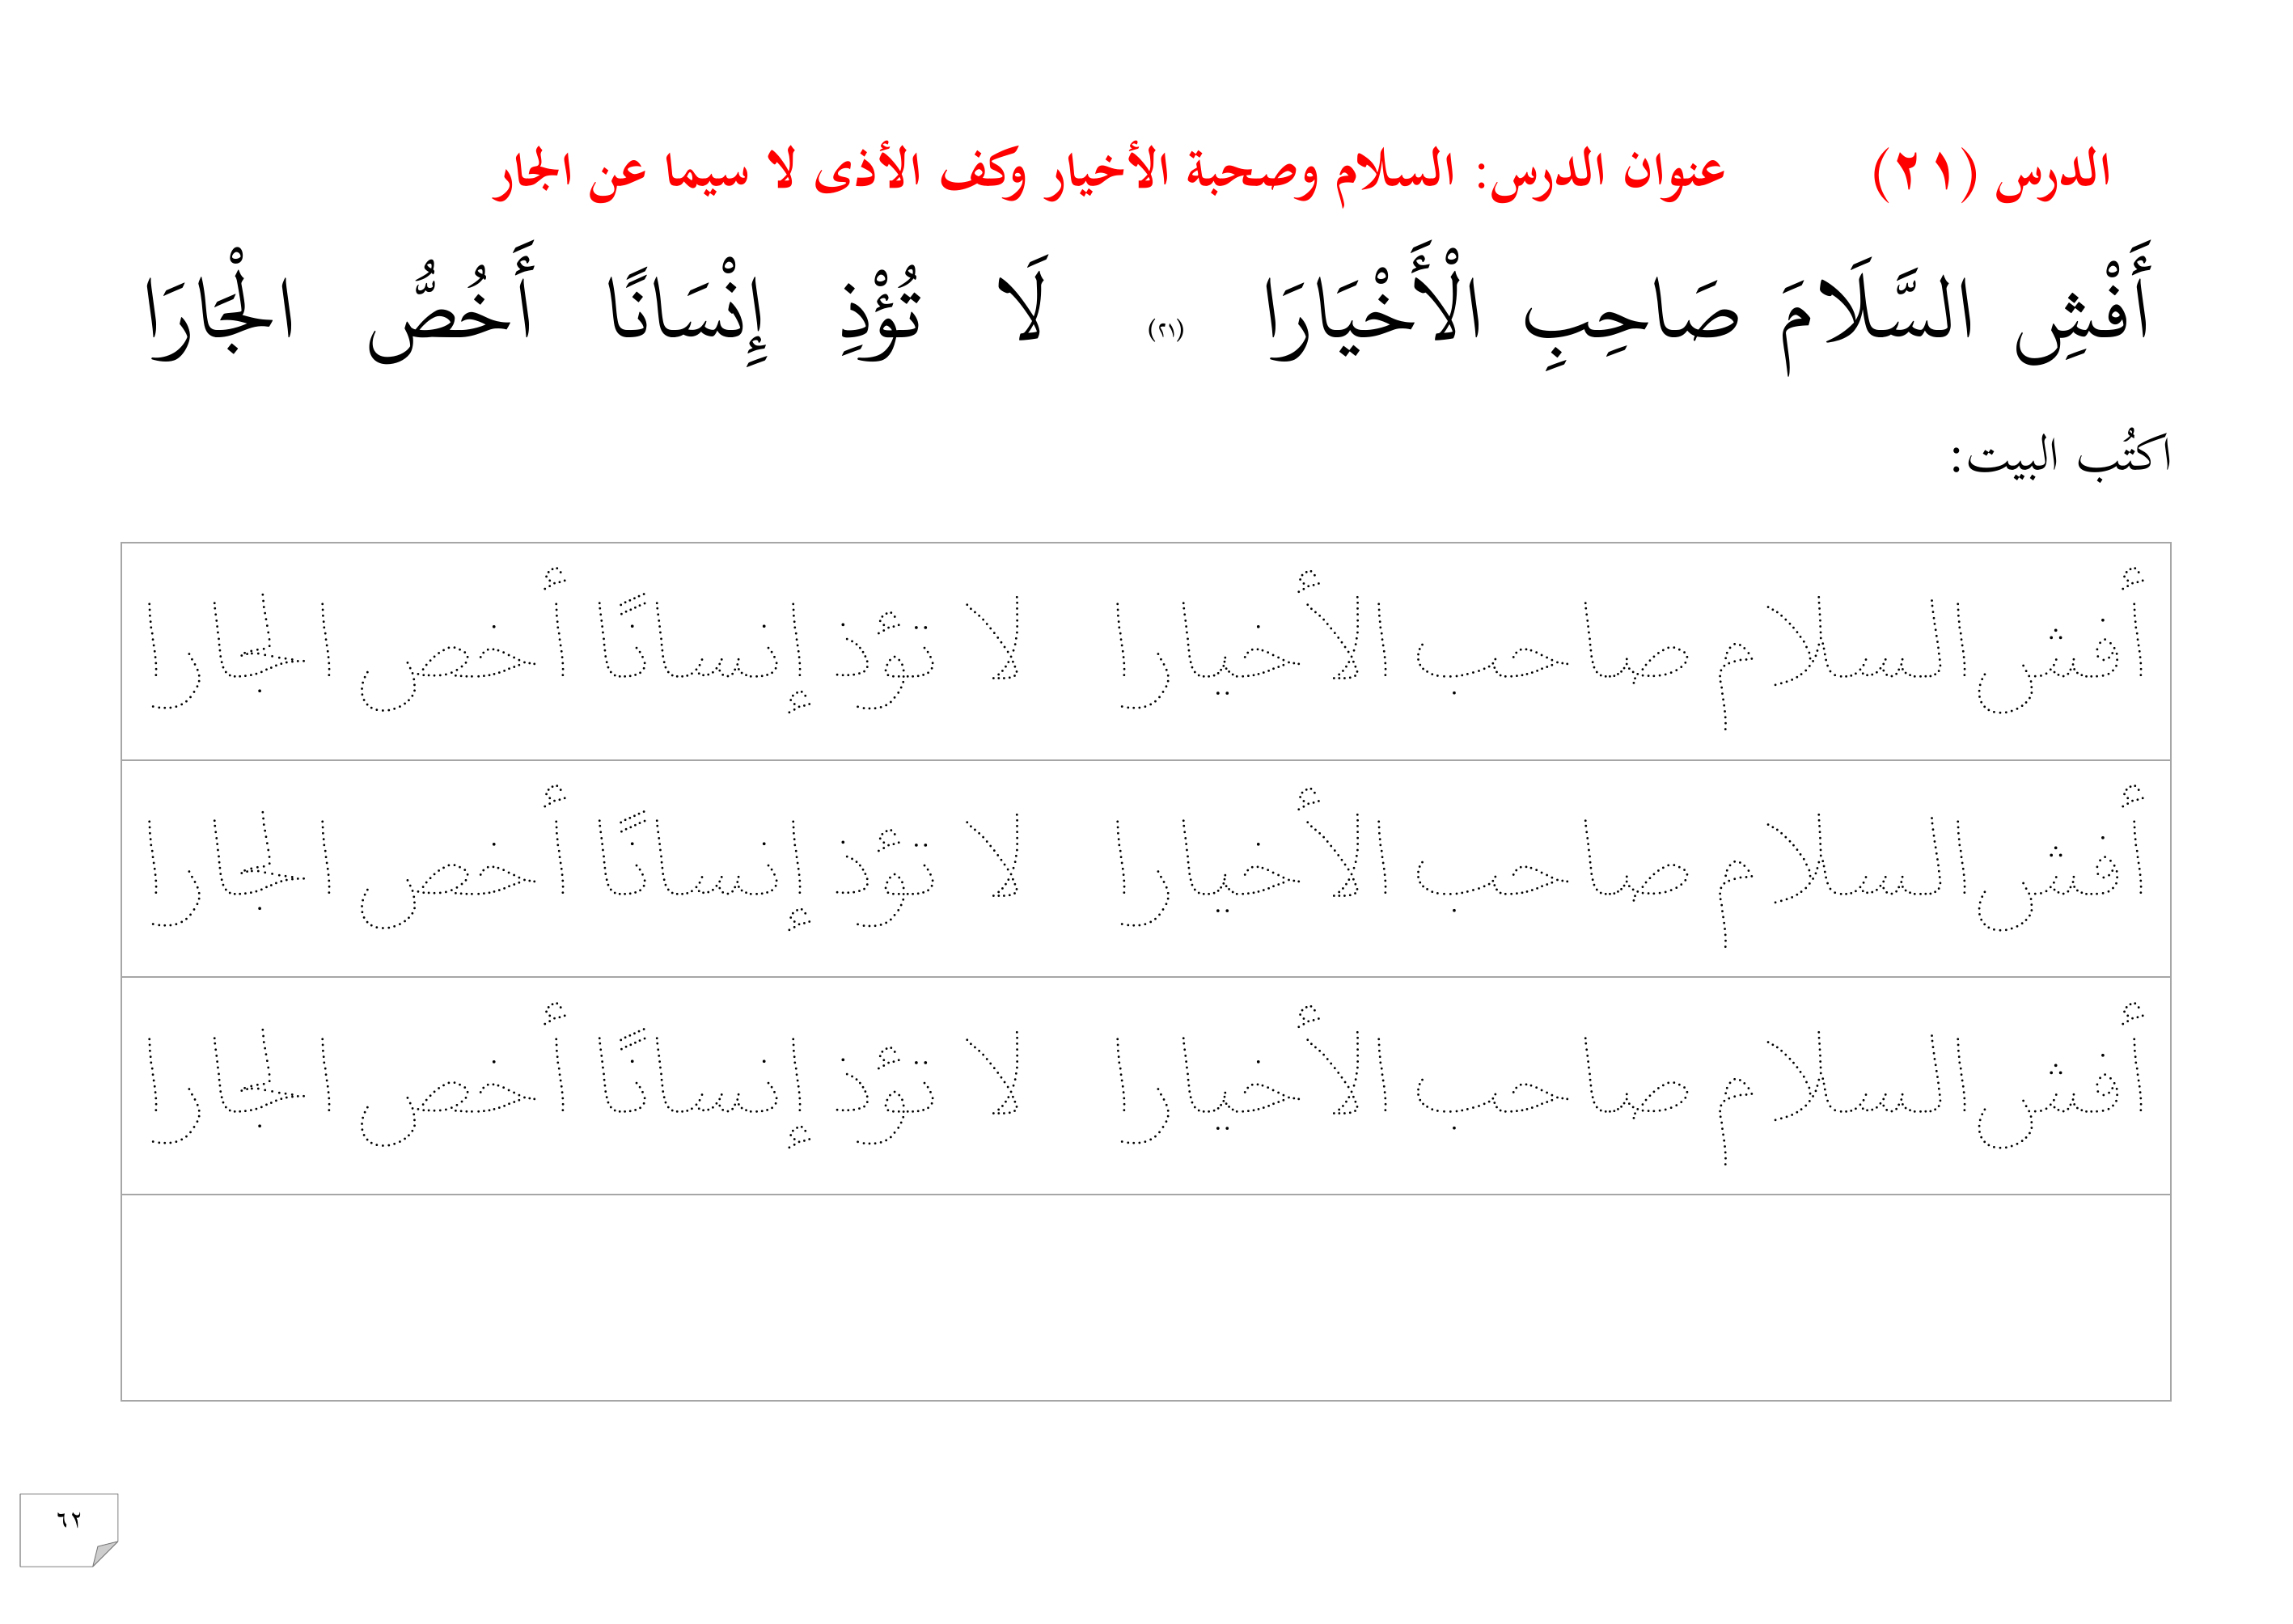 الدرس (٢١) عنوان الدرس: السلام وصحبة الأخيار وكف الأذى لا سيما عن الجار
أَفْشِ السَّلَامَ صَاحِبِ الْأَخْيَارَا (٢١) لَا تُؤْذِ إِنْسَانًا أَخُصُّ الْجَارَا
اكتُب البيت:
أفش السلام صاحب الأخيارا لا تؤذ إنسانًا أخص الجارا
أفش السلام صاحب الأخيارا لا تؤذ إنسانًا أخص الجارا
أفش السلام صاحب الأخيارا لا تؤذ إنسانًا أخص الجارا
٦٢